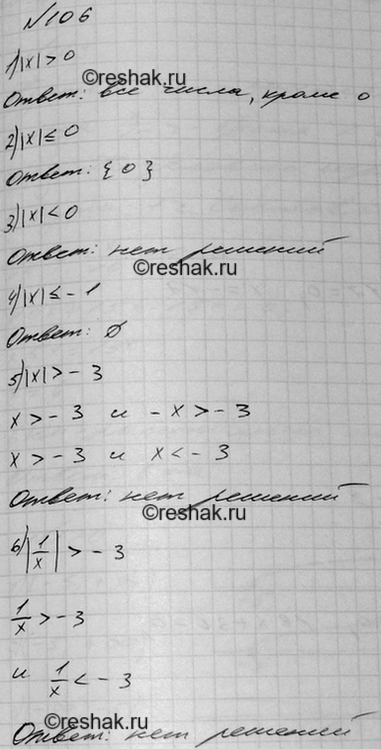 №106
1) |x| > 0
©reshak.ru
Ответ: все числа, кроме 0
2) |x| ≤ 0
Ответ: {0}
3) |x| < 0
Ответ: нет решений
©reshak.ru
4) |x| ≤ -1
Ответ: ∅
5) |x| > -3
x > -3 и -x > -3
x > -3 и x < -3
Ответ: нет решений
©reshak.ru
6) |1/x| > -3
1/x > -3
и 1/x < -3
©reshak.ru
Ответ: нет решений